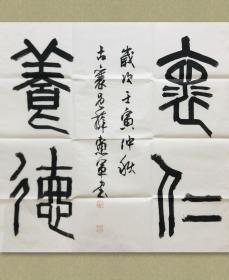 裹仁
養德
歲次壬寅仲秋
古襄呂薛惠軍書